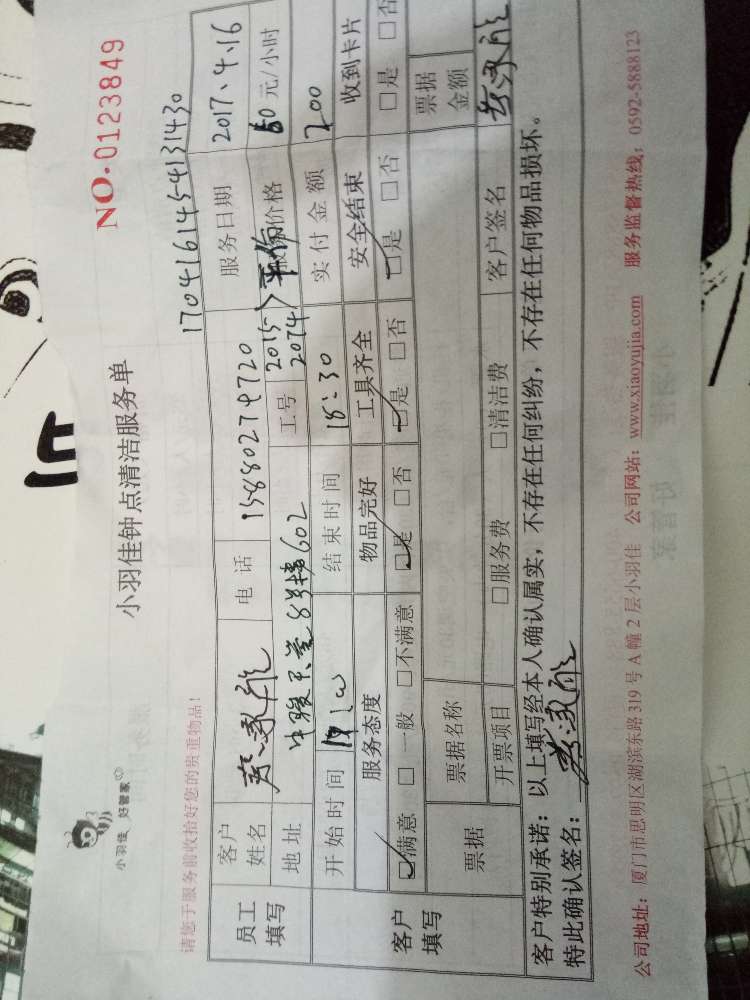 小羽佳 好管家
小羽佳钟点清洁服务单
NO.0123849
请您于服务前收拾好您的贵重物品!
1704161454131430
员工填写
客户姓名
电话 15880279720
服务日期 2017、4、16
地址 8号楼602
工号 2015 2074
价格 60元/小时
开始时间
结束时间 18:30
实付金额 200
客户填写
服务态度 物品完好 工具齐全 安全结束 收到卡片
☑满意 □一般 □不满意 ☑是 □否 ☑是 □否 ☑是 □否 □是 □否
票据 票据名称 票据金额
开票项目 □服务费 □清洁费 客户签名
客户特别承诺:以上填写经本人确认属实,不存在任何纠纷,不存在任何物品损坏。
特此确认签名:
公司地址:厦门市思明区湖滨东路319号A幢2层小羽佳 公司网站:www.xiaoyujia.com 服务监督热线:0592-5888123